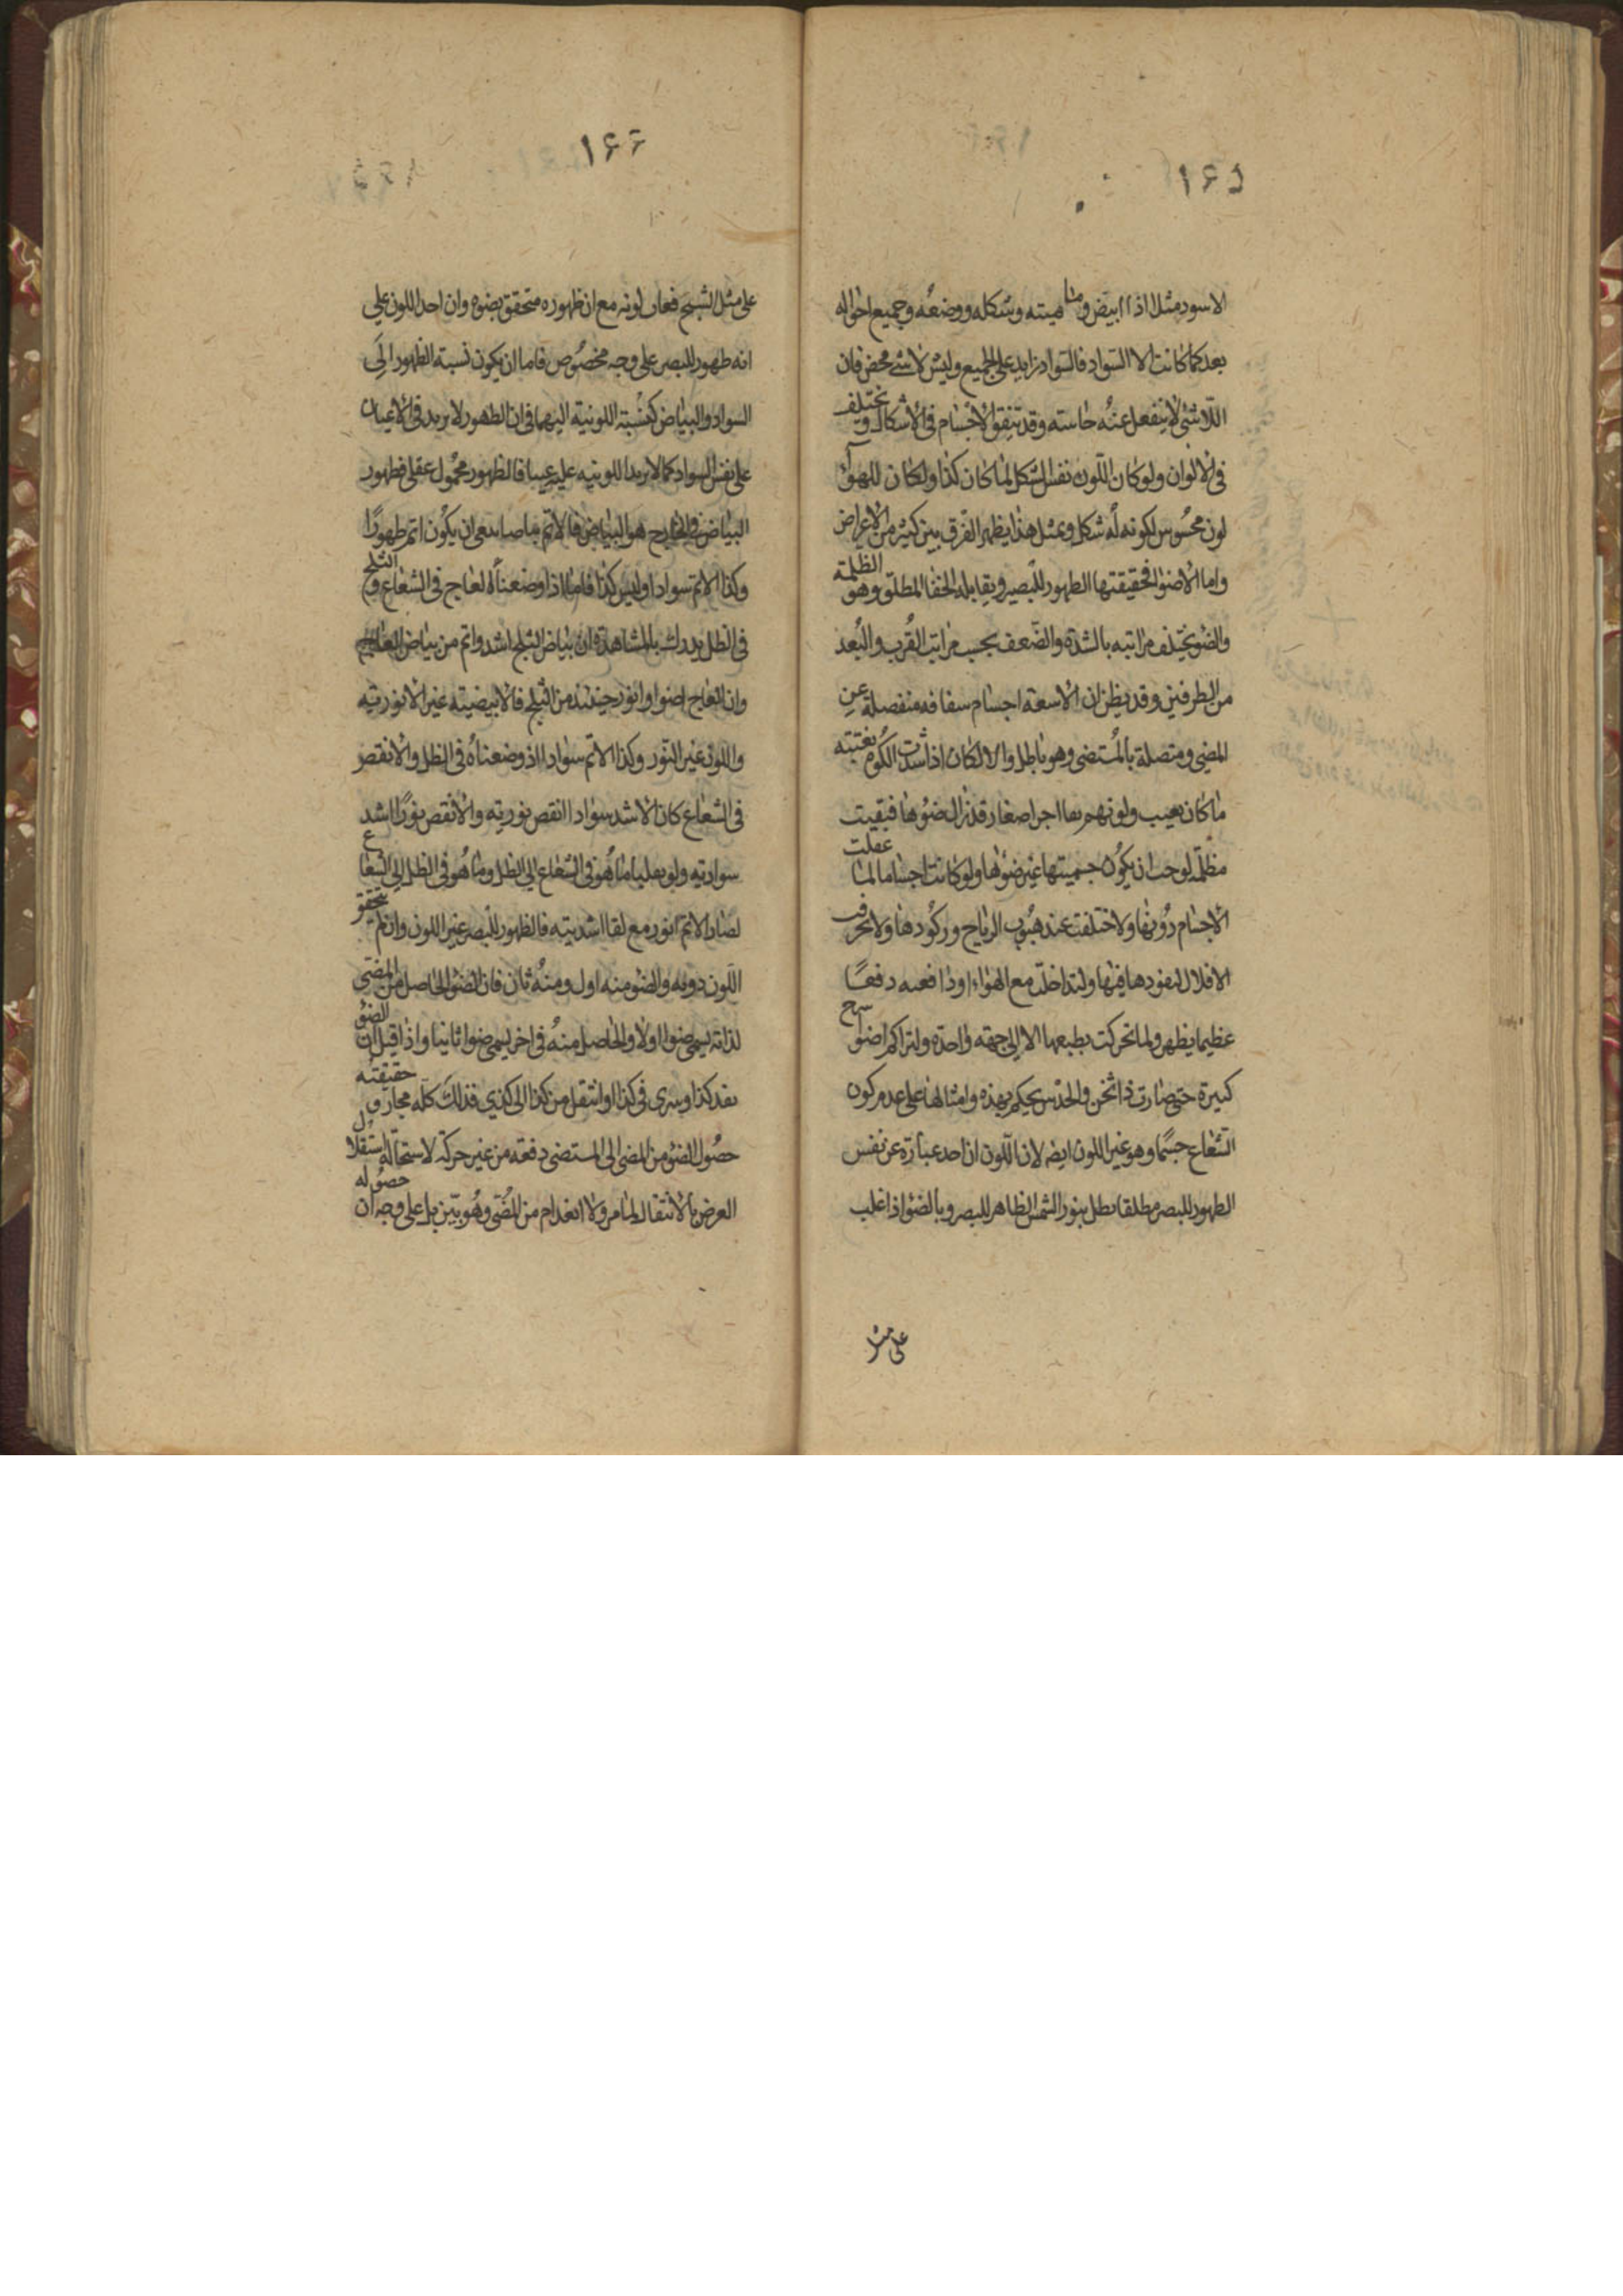 ١٦٥
الاسود مثلا اذا ابيض وما هيته وشكله ووضعه وجميع احواله
بعد كما كانت الا السواد فالسواد زايد على الجميع وليس لاشئ محض فان
اللاشئ لا ينفعل عنه حاسته وقد تتفق الاجسام فى الاشكال و تختلف
فى الالوان ولو كان اللون نفس الشكل لما كان كذا ولكان للهواء
لون محسوس لكونه له شكل وبمثل هذا يظهر الفرق بين كثير من الاعراض
واما الاضوا فحقيقتها الظهور للبصر ويقابله الخفا المطلق وهو الظلمة
والضو يختلف مراتبه بالشدة والضعف بحسب مراتب القرب والبعد
من الطرفين وقد يظن ان الاسعة اجسام سفافه منفصلة عن
المضي ومتصلة بالمستضى وهو باطل والا لكان اذا شدت الكوه بغتته
ما كان يعيب ولو توهم بها اجرا صغار قد زال ضوها فبقيت
مظلمه لوجب ان يكون جسميتها غير ضوها ولو كانت اجساما لما عفلت
الاجسام دونها ولاختلفت عند هبوب الرياح وركودها ولا نخرقت
الافلاك لنفودها فيها ولتداخلت مع الهواء اودافعه دفعا
عظيما يظهر ولما تحركت بطبعها الا الى جهة واحدة ولتراكم اضوا سرج
كبيرة حتى صارت ذا ثخن والحدس يحكم بهذه وامثالها على عدم كون
الشعاع جسما وهو غير اللون ايضه لان اللون ان احد عبارة عن نفس
الظهور للبصر مطلقا بطل بنور الشمس الظاهر للبصر وبالضو اذا غلب
على مثل
١٦٦
على مثل الشبح فعاب لونه مع ان ظهوره متحقق بضوه وان احد اللون على
انه ظهور للبصر على وجه مخصوص فاما ان يكون نسبة الظهور الى
السواد والبياض كنسبة اللونية اليهما فى ان الظهور لا يزيد فى الاعيان
على نفس السواد كما لا يزيد اللونيه عليه عينا فالظهور محمول عقلى فظهور
البياض فى الخارج هو البياض فالاتم بياضا ينبغى ان يكون اتم ظهورا
وكذا الاتم سوادا وليس كذا فانا اذا وضعنا العاج فى الشعاع و الثلج
فى الظل يدرك بالمشاهدة ان بياض الثلج اشد واتم من بياض العاج
وان العاج اضوا وانور حينئذ من الثلج فالابيضيته غير الانوريه
واللون غير النور وكذا الاتم سوادا اذ وضعناه فى الظل والانقص
فى الشعاع كان الاشد سوادا انقص نوريته والانقص نورا اشد
سواديه ولو نقلنا ما هو فى الشعاع الى الظل وما هو فى الظل الى الشعاع
لصار الاتم انور مع بقا اشديته فالظهور للبصر غير اللون وان لم يتحقق
اللون دونه والضو منه اول ومنه ثان فان الضو الحاصل من المضى
لذاته يسمى ضوا اولا والحاصل منه فى اخر يسمى ضوا ثانيا واذا قيل ان الضو
نفد كذا وسرى فى كذا او انتقل من كذا الى كذى فذلك كله مجاز و حقيقته
حصول الضو من المضى الى المستضى دفعة من غير حركة لاستحالة استقلال
العرض بالانتقال لما مر ولا انعدام من المضى وهو بين بل على وجه ان حصوله